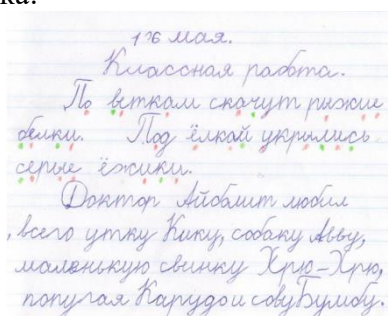 ка.
176 мая.
Классная работа.
По веткам скачут рыжие
белки. Под ёлкой укрылись
серые ёжики.
Доктор Айболит любил
, всего утку Кику, собаку Авву,
маленькую свинку Хрю-Хрю,
попугая Карудо и сову Бумбу.